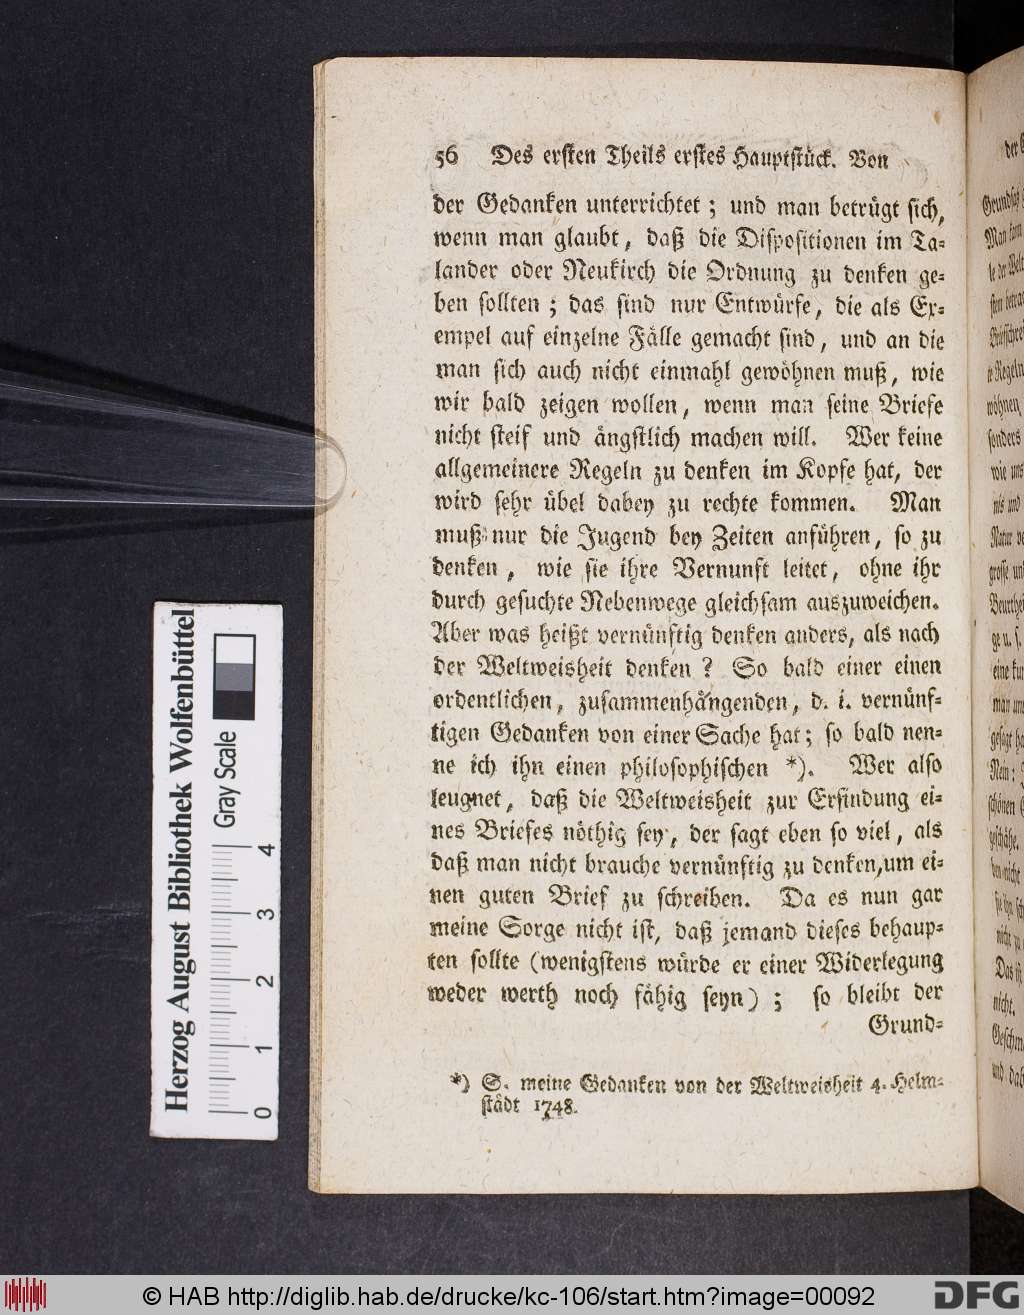 56 Des ersten Theils erstes Hauptstück. Von
der Gedanken unterrichtet; und man betrügt sich,
wenn man glaubt, daß die Dispositionen im Ta-
lander oder Neukirch die Ordnung zu denken ge-
ben sollten; das sind nur Entwürfe, die als Ex-
empel auf einzelne Fälle gemacht sind, und an die
man sich auch nicht einmahl gewöhnen muß, wie
wir bald zeigen wollen, wenn man seine Briefe
nicht steif und ängstlich machen will. Wer keine
allgemeinere Regeln zu denken im Kopfe hat, der
wird sehr übel dabey zu rechte kommen. Man
muß nur die Jugend bey Zeiten anführen, so zu
denken, wie sie ihre Vernunft leitet, ohne ihr
durch gesuchte Nebenwege gleichsam auszuweichen.
Aber was heißt vernünftig denken anders, als nach
der Weltweisheit denken? So bald einer einen
ordentlichen, zusammenhängenden, d. i. vernünf-
tigen Gedanken von einer Sache hat; so bald nen-
ne ich ihn einen philosophischen *). Wer also
leugnet, daß die Weltweisheit zur Erfindung ei-
nes Briefes nöthig sey, der sagt eben so viel, als
daß man nicht brauche vernünftig zu denken, um ei-
nen guten Brief zu schreiben. Da es nun gar
meine Sorge nicht ist, daß jemand dieses behaup-
ten sollte (wenigstens würde er einer Widerlegung
weder werth noch fähig seyn); so bleibt der
Grund-
*) S. meine Gedanken von der Weltweisheit 4. Helm-
städt 1748.
Herzog August Bibliothek Wolfenbüttel
Gray Scale
0 1 2 3 4
© HAB http://diglib.hab.de/drucke/kc-106/start.htm?image=00092
DFG